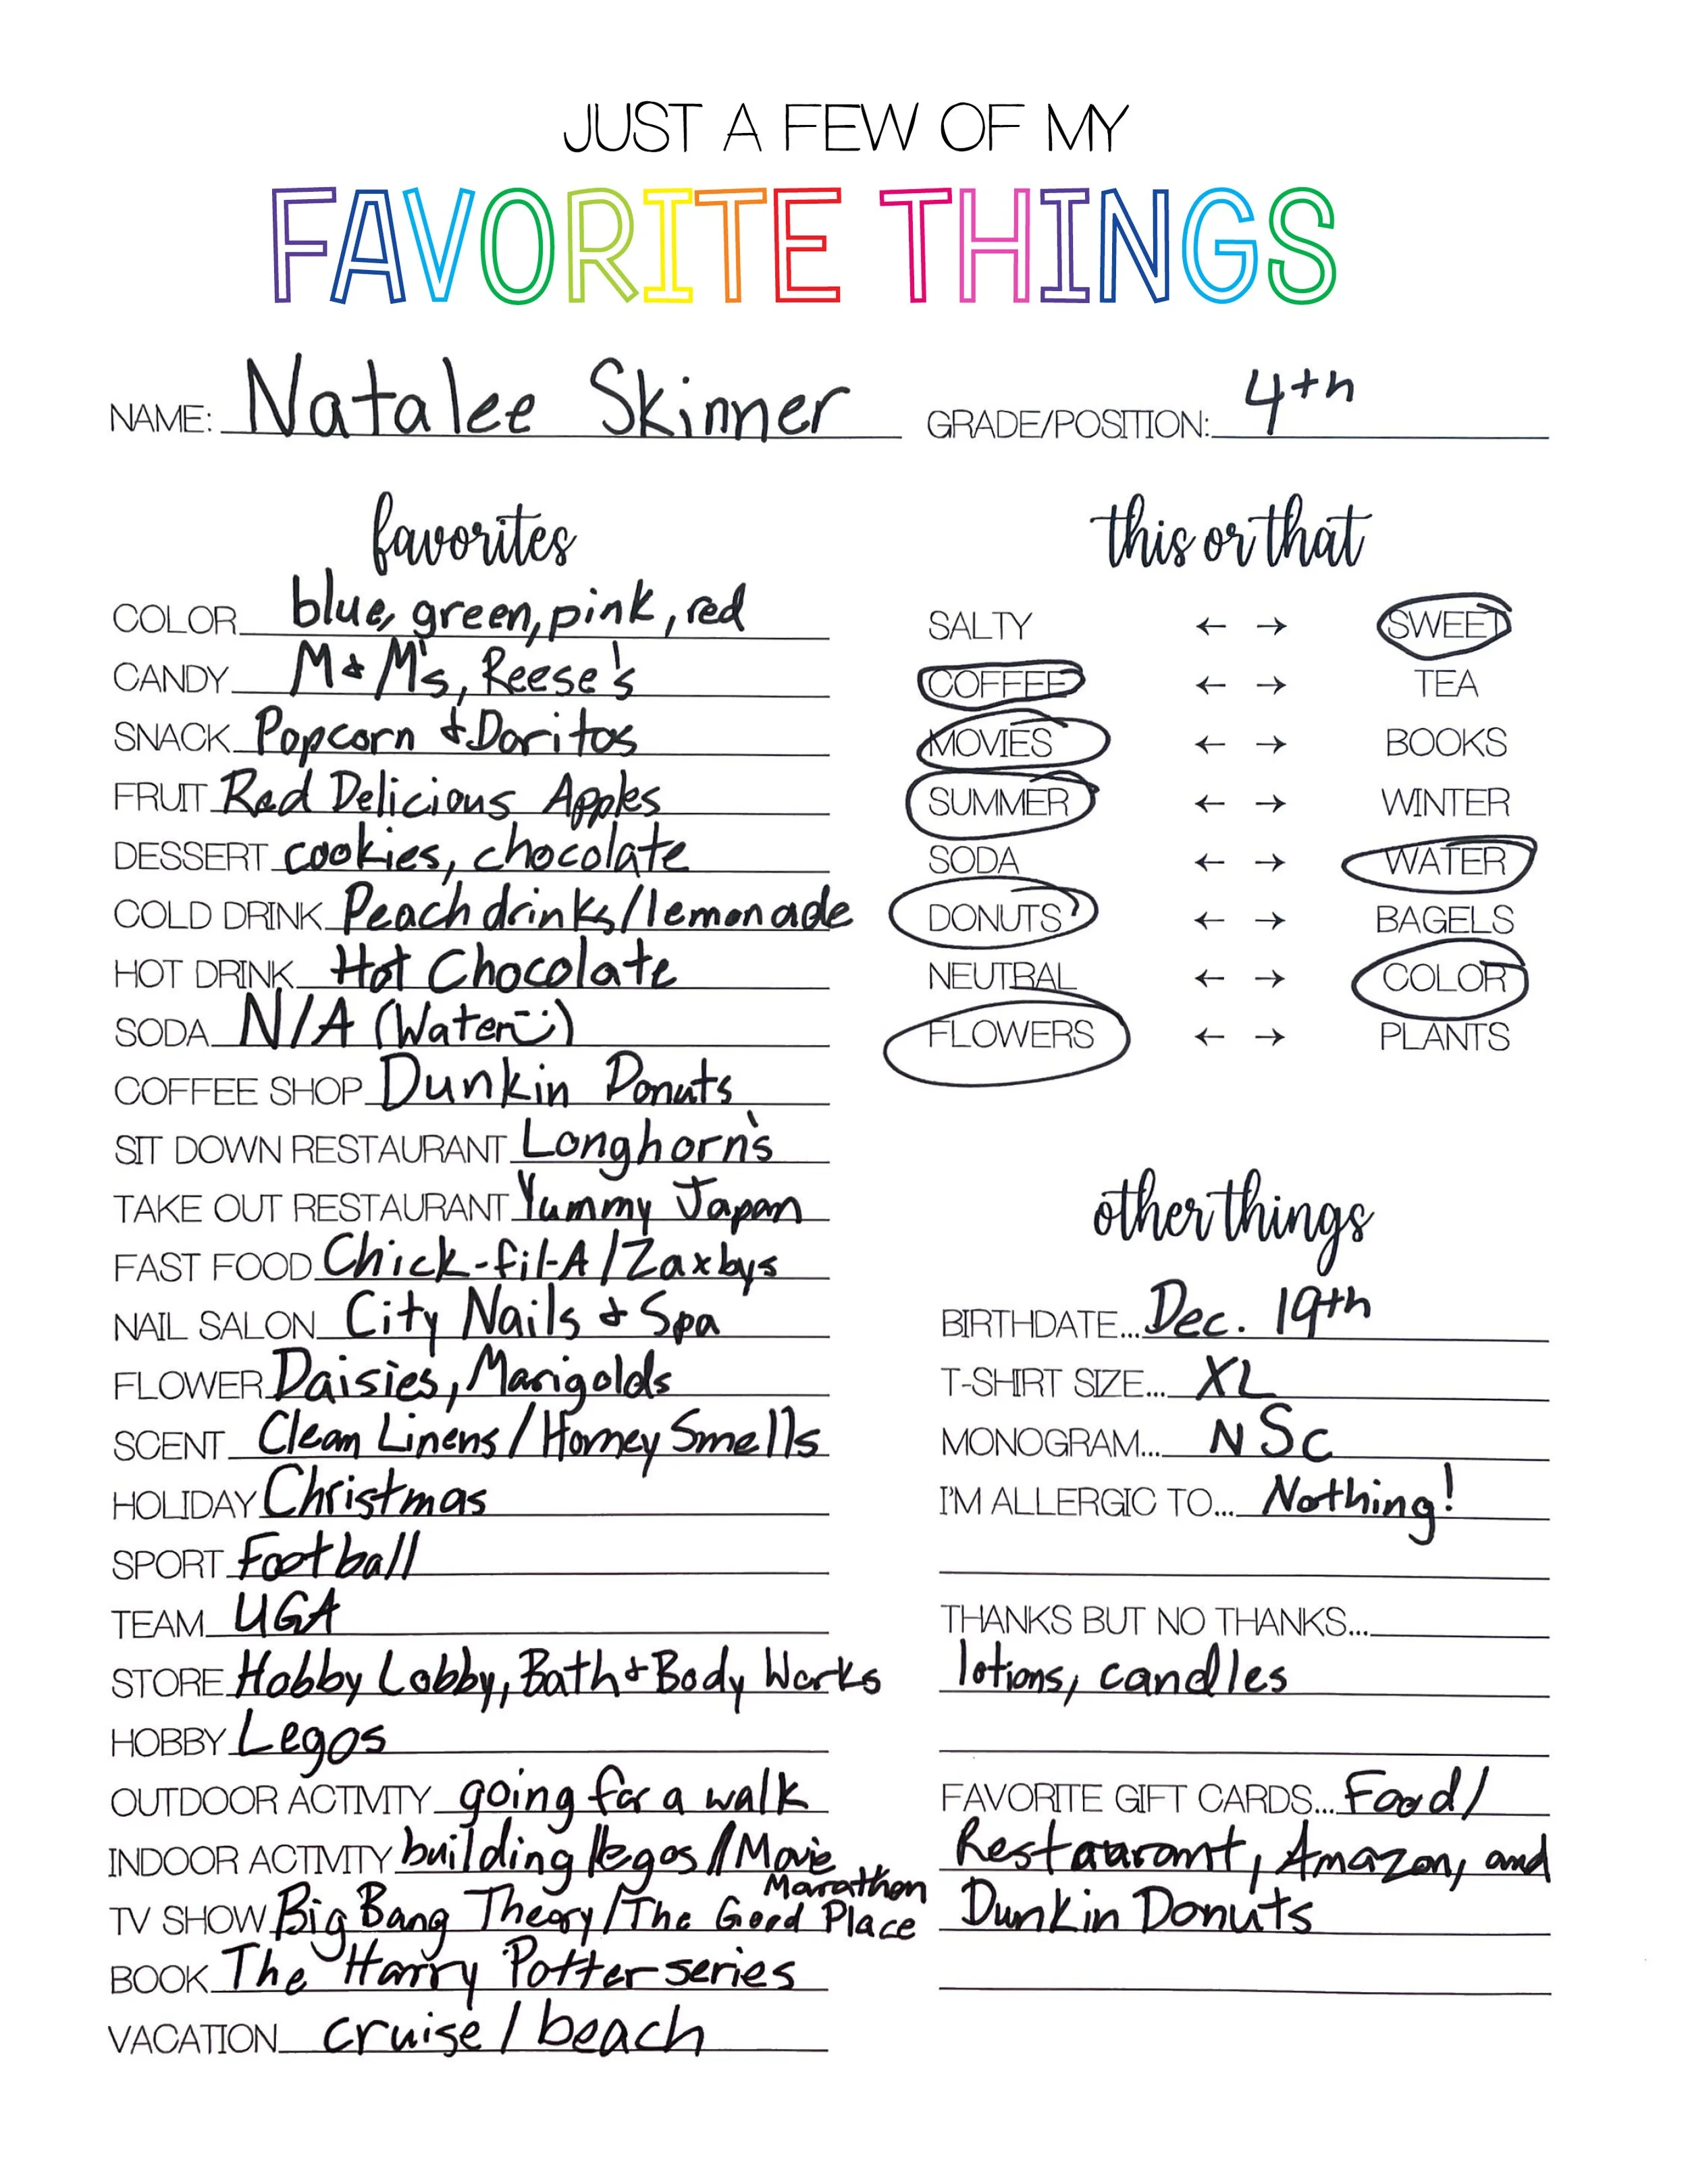 JUST A FEW OF MY
FAVORITE THINGS
NAME: Natalee Skinner GRADE/POSITION: 4th
favorites
COLOR blue, green, pink, red
CANDY M&M's, Reese's
SNACK Popcorn & Doritos
FRUIT Red Delicious Apples
DESSERT cookies, chocolate
COLD DRINK Peach drinks/lemonade
HOT DRINK Hot Chocolate
SODA N/A (Water)
COFFEE SHOP Dunkin Donuts
SIT DOWN RESTAURANT Longhorn's
TAKE OUT RESTAURANT Yummy Japan
FAST FOOD Chick-fil-A/Zaxbys
NAIL SALON City Nails & Spa
FLOWER Daisies, Marigolds
SCENT Clean Linens/Homey Smells
HOLIDAY Christmas
SPORT Football
TEAM UGA
STORE Hobby Lobby, Bath & Body Works
HOBBY Legos
OUTDOOR ACTIVITY going for a walk
INDOOR ACTIVITY building legos/Movie
Marathon
TV SHOW Big Bang Theory/The Good Place
BOOK The Harry Potter series
VACATION cruise/beach
this or that
SALTY ← → SWEET
COFFEE ← → TEA
MOVIES ← → BOOKS
SUMMER ← → WINTER
SODA ← → WATER
DONUTS ← → BAGELS
NEUTRAL ← → COLOR
FLOWERS ← → PLANTS
other things
BIRTHDATE... Dec. 19th
T-SHIRT SIZE... XL
MONOGRAM... NSC
I'M ALLERGIC TO... Nothing!
THANKS BUT NO THANKS...
lotions, candles
FAVORITE GIFT CARDS... Food/
Restaurant, Amazon, and
Dunkin Donuts